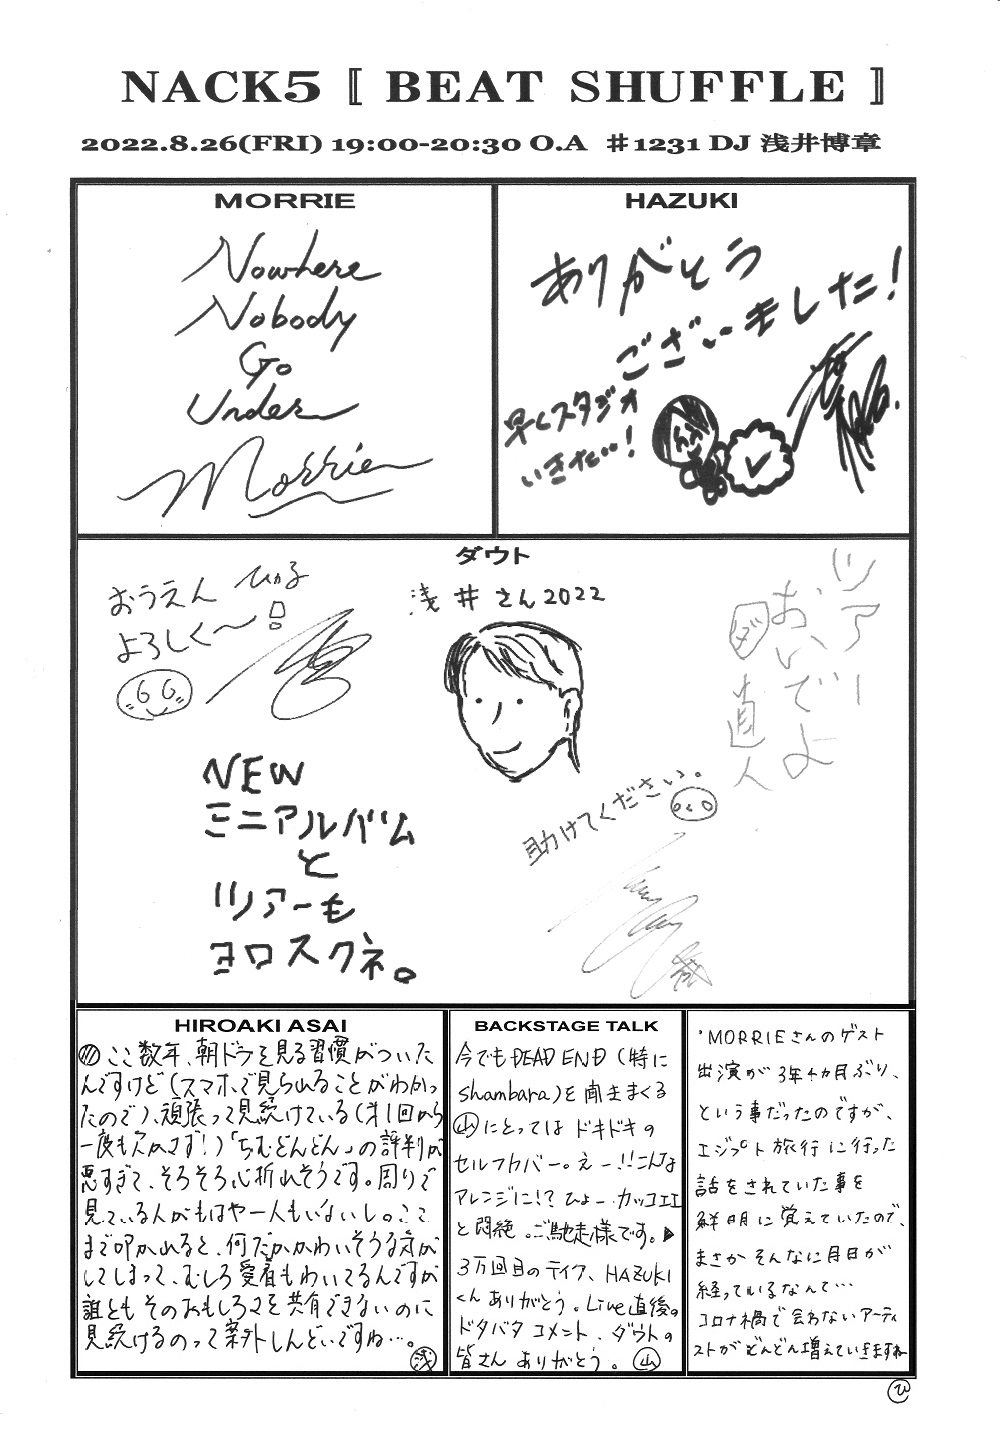 NACK5 〚 BEAT SHUFFLE 〛
2022.8.26(FRI) 19:00-20:30 O.A ＃1231 DJ 浅井博章
MORRIE
Nowhere
Nobody
Go
Under
Morrie
HAZUKI
ありがとう
ございました！
早くスタジオ
いきたい！
ダウト
おうえん ひゅる
よろしく〜!
浅井さん2022
ツアー
おいでよ
ダ
直人
NEW
ミニアルバム
と
ツアーも
ヨロスクネ。
助けてください。
HIROAKI ASAI
ここ数年、朝ドラを見る習慣がついた
んですけど(スマホで見られることがわかっ
たので)、頑張って見続けている(第1回から
一度も欠かさず!)「ちむどんどん」の評判が
悪すぎて、そろそろ心折れそうです。周りで
見ている人がもはや一人もいないし。ここ
まで叩かれると、何だかかわいそうな気が
してしまって、むしろ愛着もわいてるんですが
誰ともそのおもしろさを共有できないのに
見続けるのって案外しんどいですね…。
浅
BACKSTAGE TALK
今でもDEAD END (特に
shambara)を聞きまくる
山にとってはドキドキの
セルフカバー。えー!!こんな
アレンジに!?ひょーカッコエエ
と悶絶。ご馳走様です。▶
3万回目のティア、HAZUKI
くんありがとう。Live直後の
ドタバタコメント、ダウトの
皆さんありがとう。山
・MORRIEさんのゲスト
出演が3年4カ月ぶり、
という事だったのですが、
エジプト旅行に行った
話をされていた事を
鮮明に覚えていたので、
まさかそんなに月日が
経っているなんて…
コロナ禍で会わないアーティ
ストがどんどん増えていきますね
ひ